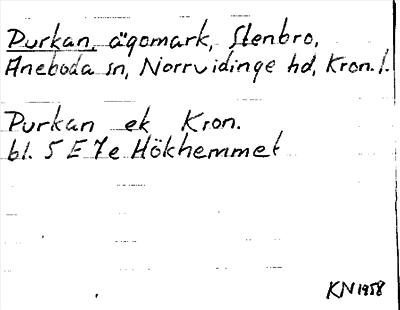 Purkan, ägomark, Stenbro,
Aneboda sn, Norrvidinge hd, Kron. l.
Purkan ek Kron.
bl. 5 E 7e Hökhemmet
KN 1958